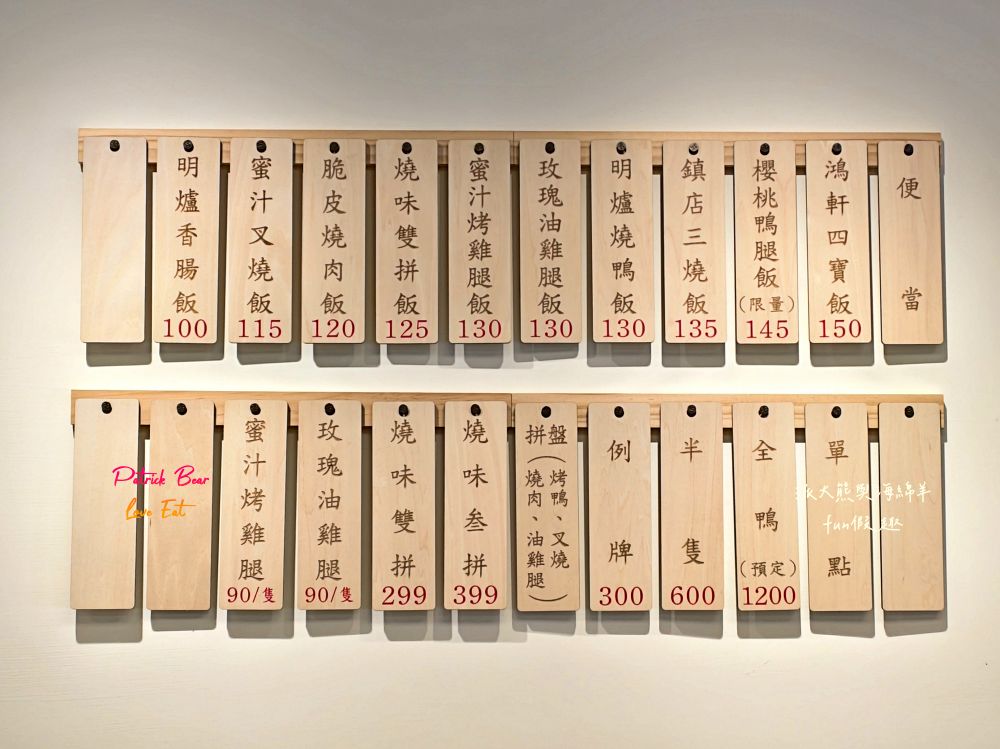 便當
鴻軒四寶飯
150
櫻桃鴨腿飯
(限量)
145
鎮店三燒飯
135
明爐燒鴨飯
130
玫瑰油雞腿飯
130
蜜汁烤雞腿飯
130
燒味雙拼飯
125
脆皮燒肉飯
120
蜜汁叉燒飯
115
明爐香腸飯
100
單點
全鴨
(預定)
1200
半隻
600
例牌
300
拼盤
(烤鴨、叉燒
燒肉、油雞腿)
燒味叁拼
399
燒味雙拼
299
玫瑰油雞腿
90/隻
蜜汁烤雞腿
90/隻
Patrick Bear
Love Eat
派大熊與海綿羊
fun假趣